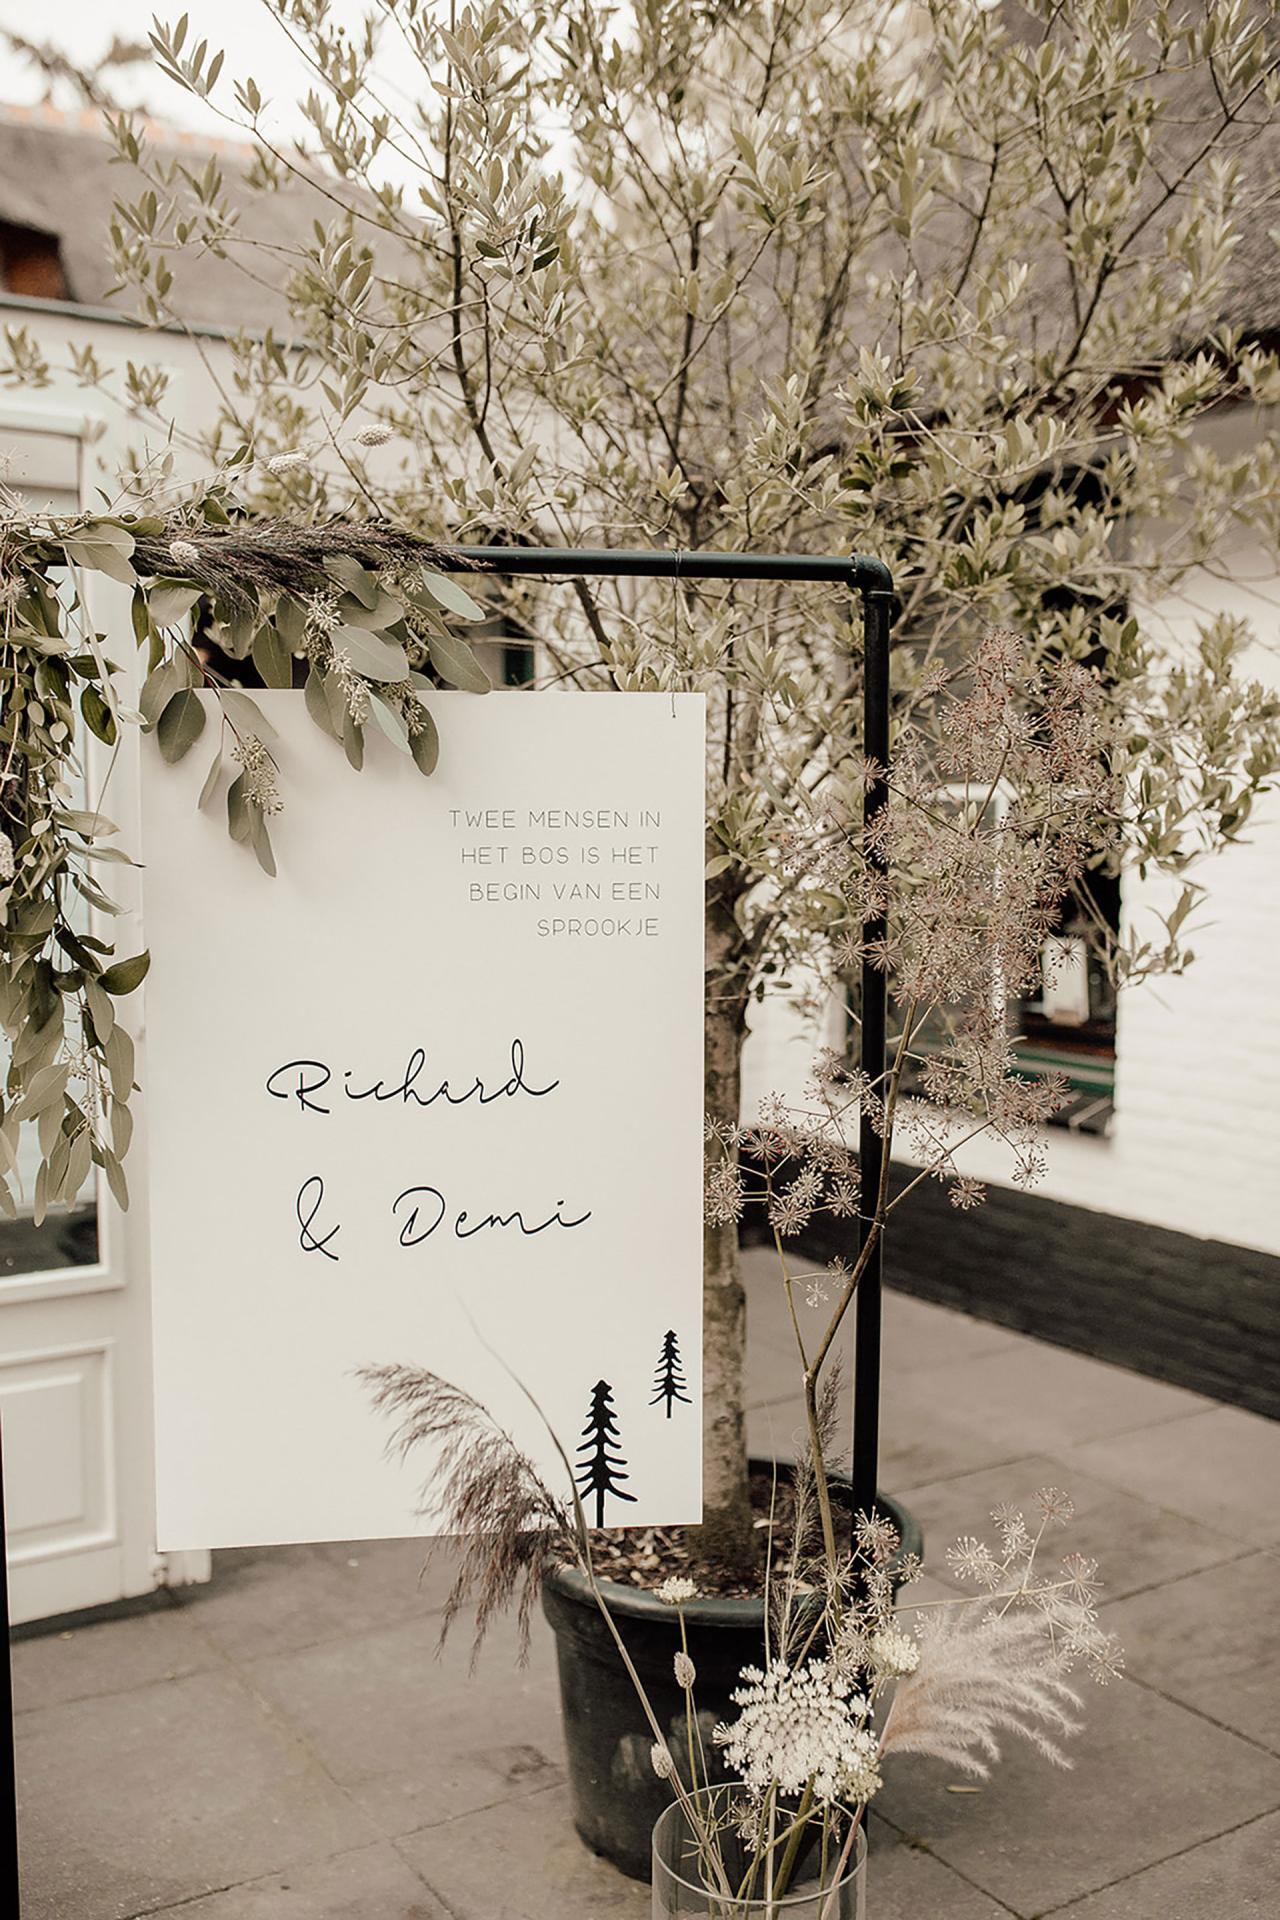 TWEE MENSEN IN
HET BOS IS HET
BEGIN VAN EEN
SPROOKJE
Richard
& Demi